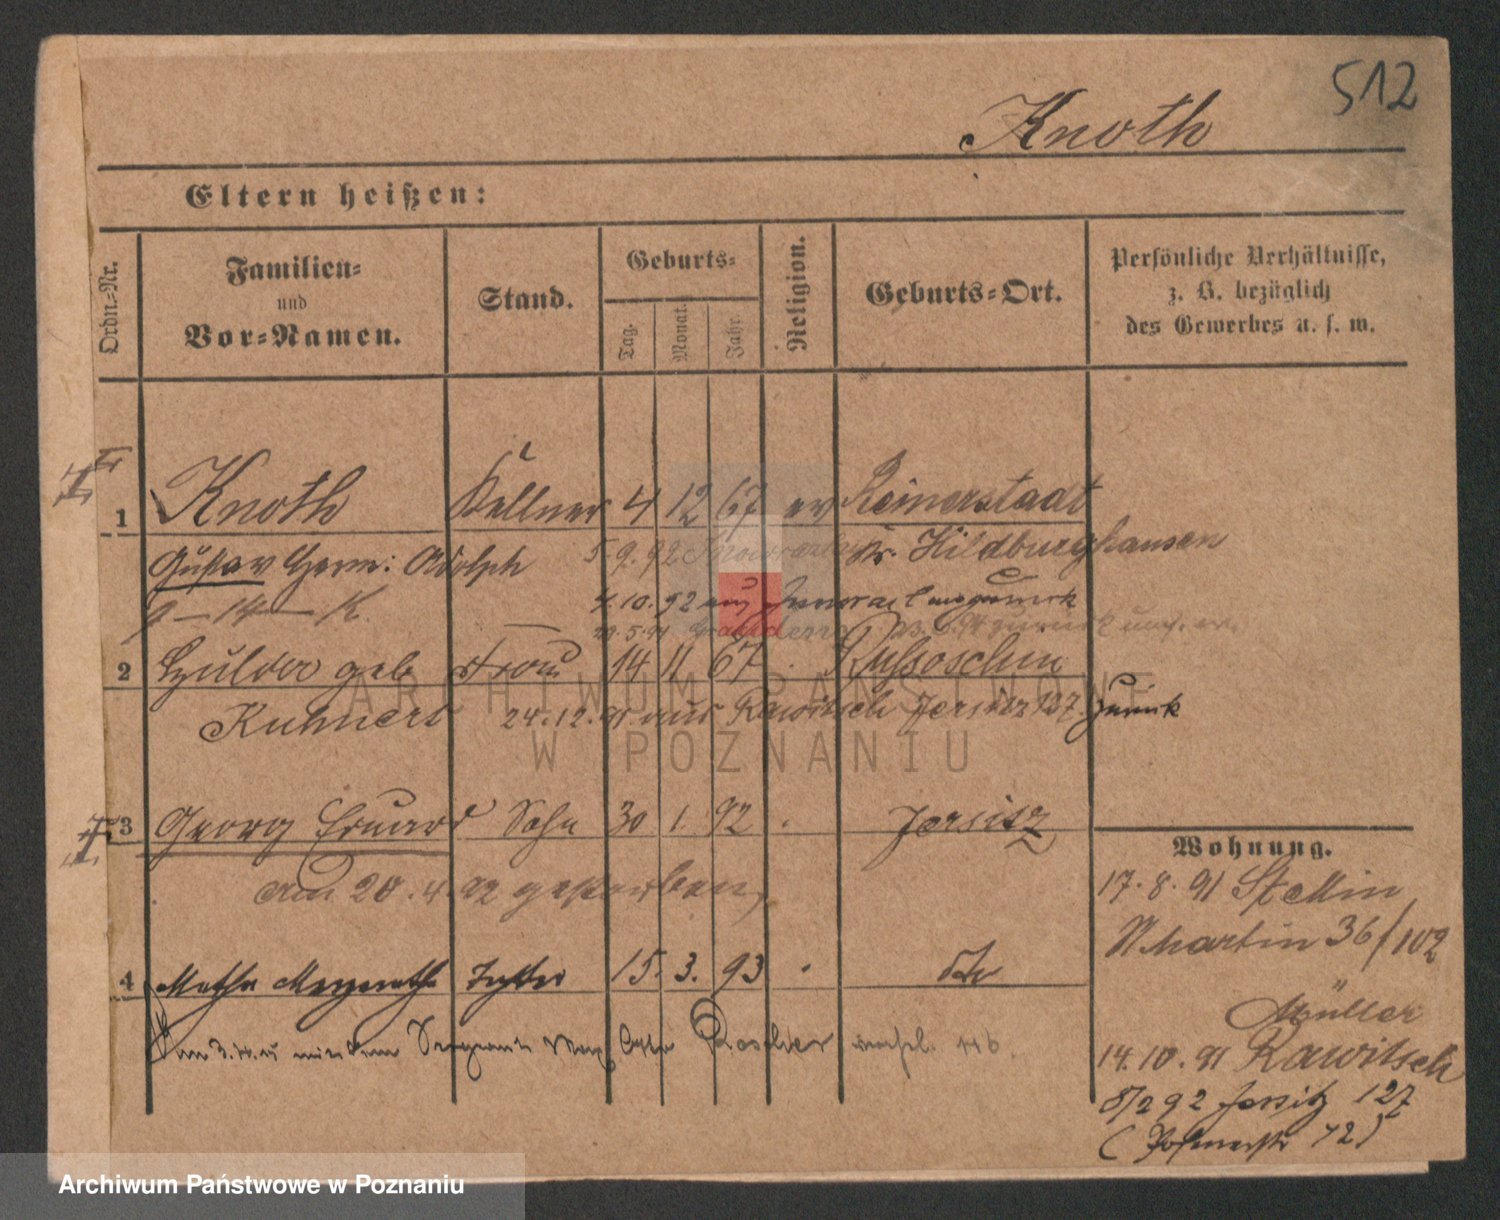 512
Knoth
Eltern heißen:
Ordn.-Nr.
Familien-
und
Vor-Namen.
Stand.
Geburts-
Tag.
Monat.
Jahr.
Religion.
Geburts-Ort.
Persönliche Verhältnisse,
z. B. bezüglich
des Gewerbes u. s. w.
1 Knoth Kellner 4 12 67 ev Reinerstadt
Gustav Herm: Adolph 5.9.92 Kr. Hildburghausen
4.10.92 aus
2 Hulda geb Frau 14 11 67 Russoschin
Kuhnert 24.12.91 aus Rawitsch Jersitz 127 zurück
3 Georg Eduard Sohn 30 1. 92 Jersitz
am 20.4.92 gestorben,
4 Martha Margarethe Tochter 15. 3. 93 dto
Roscher 116.
Wohnung.
17.8.91 Stettin
St. Martin 36/102
Müller
14.10.91 Rawitsch
5/2 92 Jersitz 127
ARCHIWUM PAŃSTWOWE
W POZNANIU
Archiwum Państwowe w Poznaniu